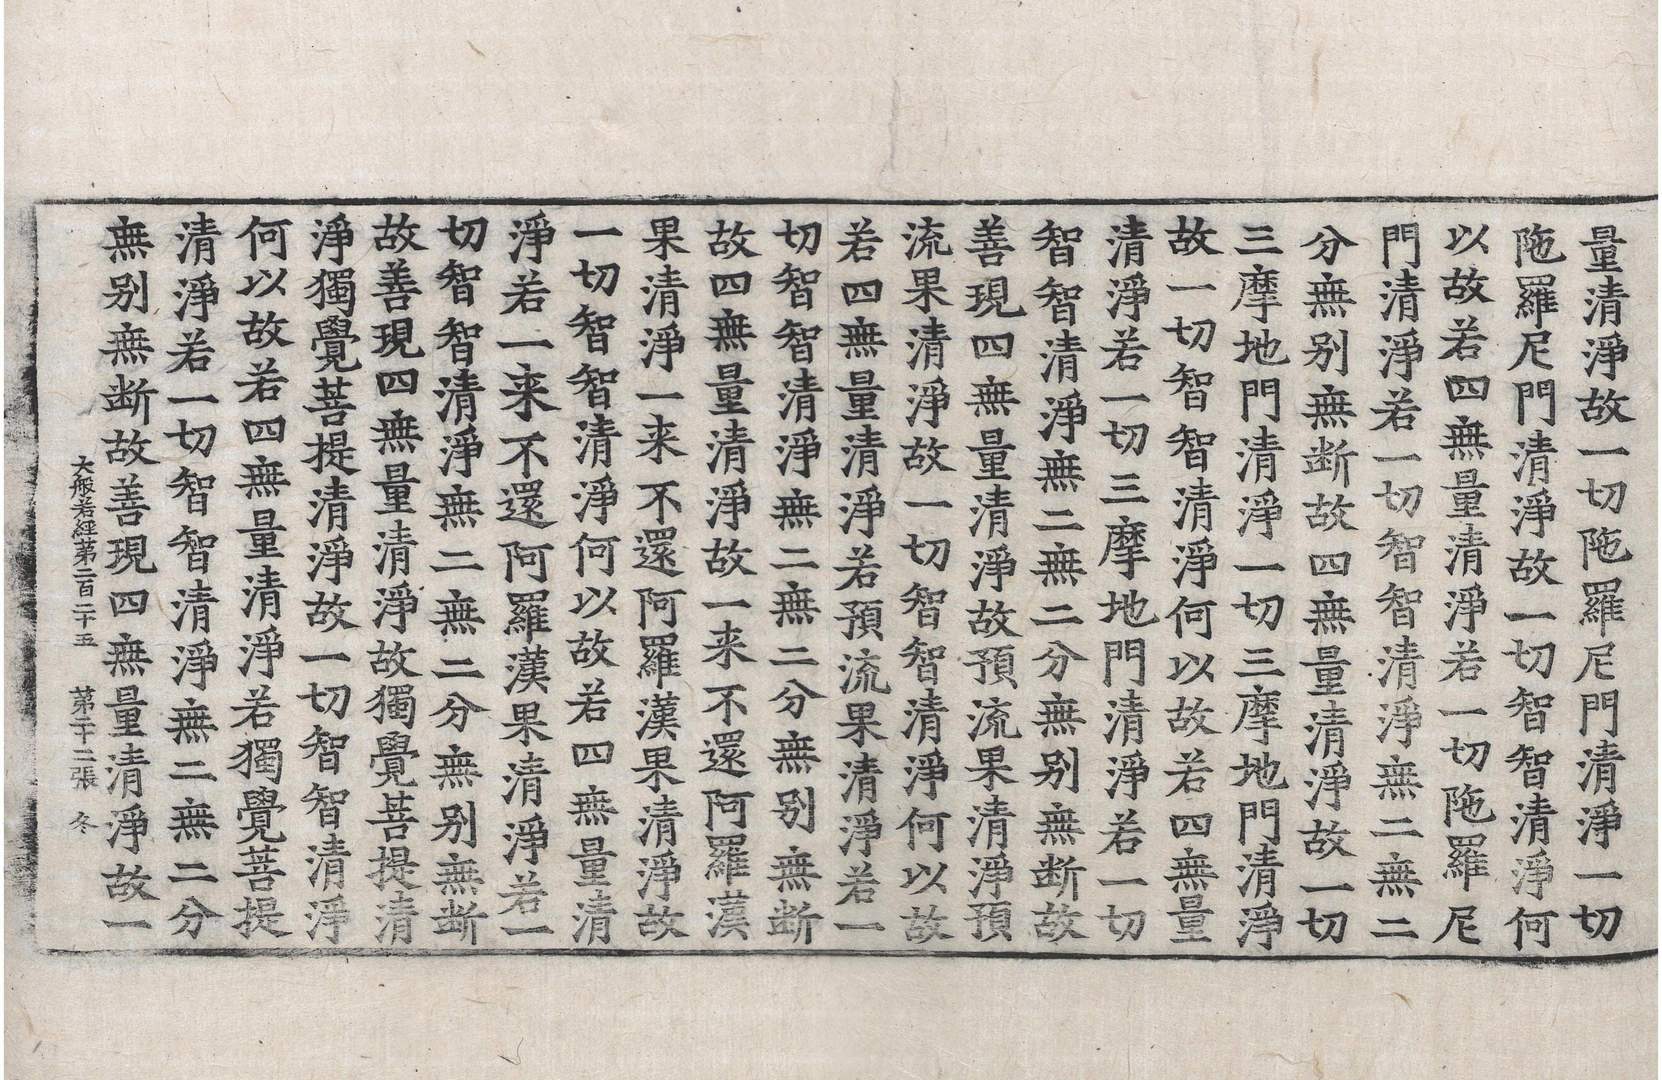 量清淨故一切陁羅尼門清淨一切
陁羅尼門清淨故一切智智清淨何
以故若四無量清淨若一切陁羅尼
門清淨若一切智智清淨無二無二
分無别無断故四無量清淨故一切
三摩地門清淨一切三摩地門清淨
故一切智智清淨何以故若四無量
清淨若一切三摩地門清淨若一切
智智清淨無二無二分無别無断故
善現四無量清淨故預流果清淨預
流果清淨故一切智智清淨何以故
若四無量清淨若預流果清淨若一
切智智清淨無二無二分無别無断
故四無量清淨故一来不還阿羅漢
果清淨一来不還阿羅漢果清淨故
一切智智清淨何以故若四無量清
淨若一来不還阿羅漢果清淨若一
切智智清淨無二無二分無别無断
故善現四無量清淨故獨覺菩提清
淨獨覺菩提清淨故一切智智清淨
何以故若四無量清淨若獨覺菩提
清淨若一切智智清淨無二無二分
無别無断故善現四無量清淨故一
大般若經苐二百二十五 苐二十二張 冬